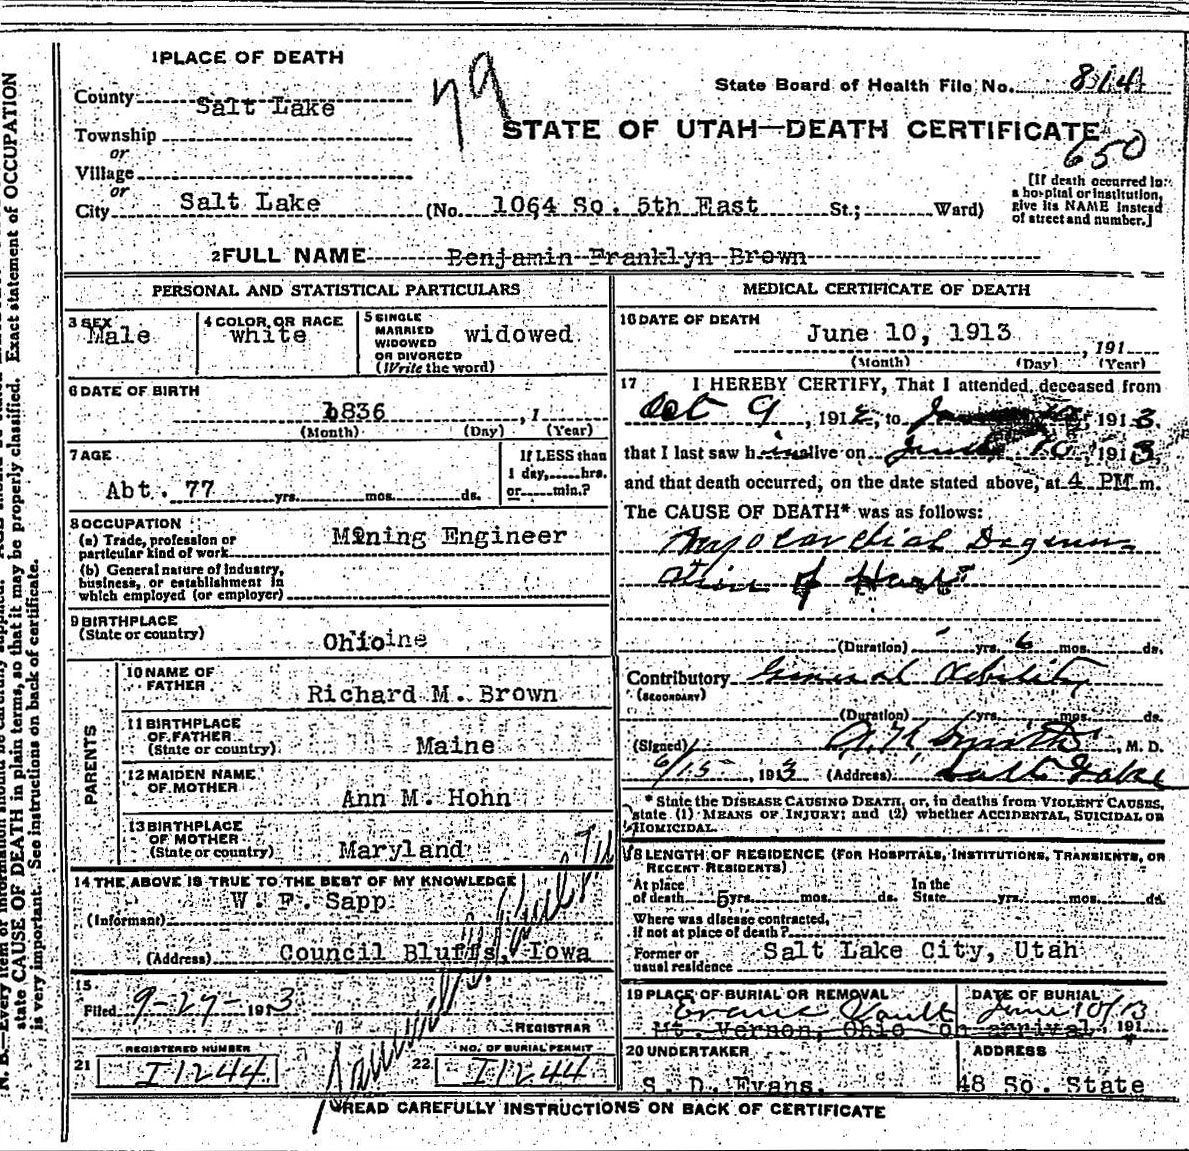 1 PLACE OF DEATH
State Board of Health File No. 814
County Salt Lake
STATE OF UTAH—DEATH CERTIFICATE
Township
or
650
Village
or
City Salt Lake (No. 1064 So. 5th East St.; Ward)
[If death occurred in a hospital or institution, give its NAME instead of street and number.]
2 FULL NAME Benjamin Franklyn Brown
PERSONAL AND STATISTICAL PARTICULARS
3 SEX Male
4 COLOR OR RACE white
5 SINGLE MARRIED WIDOWED OR DIVORCED (Write the word) widowed
6 DATE OF BIRTH
1836, 1
(Month) (Day) (Year)
7 AGE
Abt. 77 yrs. mos. ds.
If LESS than 1 day, hrs. or min.?
8 OCCUPATION
(a) Trade, profession or particular kind of work Mining Engineer
(b) General nature of industry, business, or establishment in which employed (or employer)
9 BIRTHPLACE
(State or country) Ohio
PARENTS
10 NAME OF FATHER Richard M. Brown
11 BIRTHPLACE OF FATHER (State or country) Maine
12 MAIDEN NAME OF MOTHER Ann M. Hohn
13 BIRTHPLACE OF MOTHER (State or country) Maryland
14 THE ABOVE IS TRUE TO THE BEST OF MY KNOWLEDGE
(Informant) W. F. Sapp
(Address) Council Bluffs, Iowa
15
Filed 9-27- 1913
REGISTRAR
21 REGISTERED NUMBER I1244
22 NO. OF BURIAL PERMIT I1244
MEDICAL CERTIFICATE OF DEATH
16 DATE OF DEATH
June 10, 1913, 191
(Month) (Day) (Year)
17 I HEREBY CERTIFY, That I attended deceased from
Oct 9, 1912, to , 1913
that I last saw him alive on June 10, 1913
and that death occurred, on the date stated above, at 4 PM m.
The CAUSE OF DEATH* was as follows:
Myocardial Degenera
tion of Heart
(Duration) yrs. 6 mos. ds.
Contributory General Debility
(SECONDARY)
(Duration) yrs. mos. ds.
(Signed) Smith, M. D.
6/15, 1913 (Address) Salt Lake
* State the DISEASE CAUSING DEATH, or, in deaths from VIOLENT CAUSES,
state (1) MEANS OF INJURY; and (2) whether ACCIDENTAL, SUICIDAL OR
HOMICIDAL.
18 LENGTH OF RESIDENCE (FOR HOSPITALS, INSTITUTIONS, TRANSIENTS, OR
RECENT RESIDENTS)
At place of death 5 yrs. mos. ds. In the State yrs. mos. ds.
Where was disease contracted,
if not at place of death?
Former or usual residence Salt Lake City, Utah
19 PLACE OF BURIAL OR REMOVAL DATE OF BURIAL
Evans Vault June 10/13
Mt. Vernon, Ohio on arrival, 191
20 UNDERTAKER ADDRESS
S. D. Evans. 48 So. State
READ CAREFULLY INSTRUCTIONS ON BACK OF CERTIFICATE
state CAUSE OF DEATH in plain terms, so that it may be properly classified. Exact statement of OCCUPATION
is very important. See instructions on back of certificate.